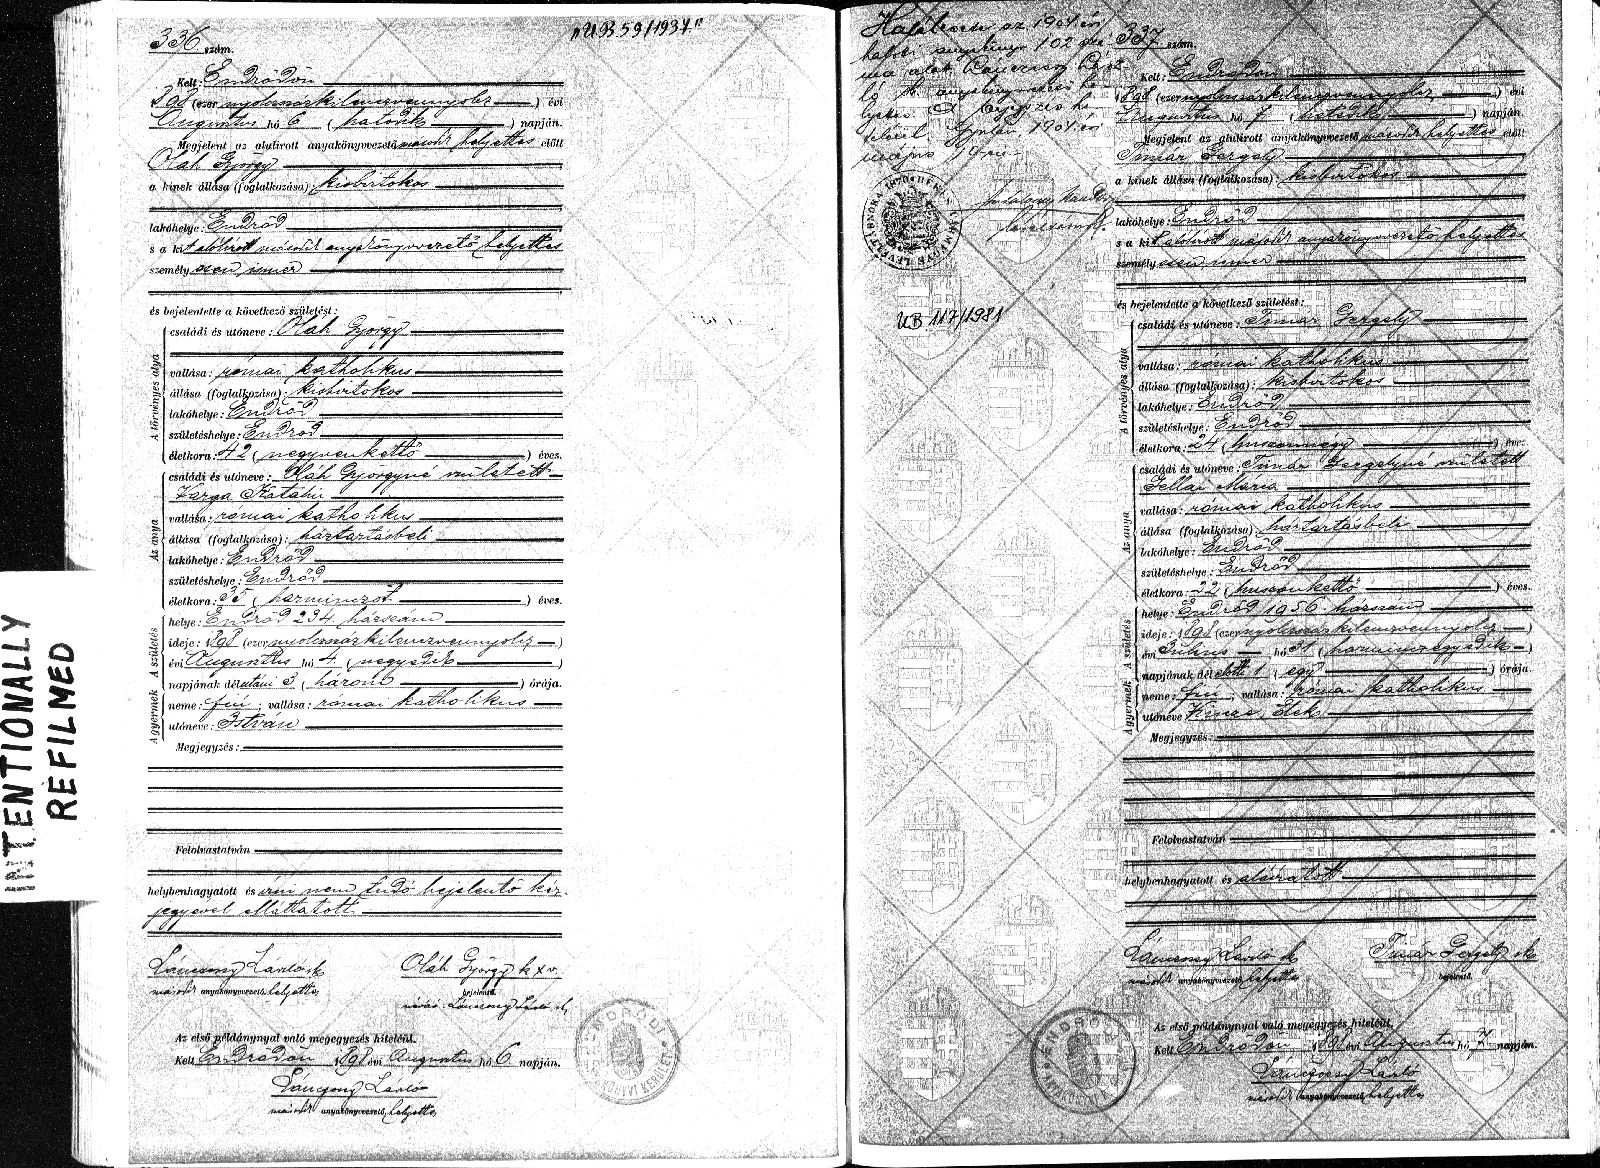 INTENTIONALLY
REFILMED
336 szám.
"UB 59/1937."
Kelt: Endrődön
1898 (ezer nyolczszázkilenczvennyolcz) évi
Augusztus hó 6 (hatodik) napján.
Megjelent az alulirott anyakönyvvezető másodit helyettes előtt
Oláh György
a kinek állása (foglalkozása): kisbirtokos
lakóhelye: Endrőd
s a kit alólirott másodit anyakönyvvezető helyettes
személyesen ismer
és bejelentette a következő születést:
A törvényes atya
családi és utóneve: Oláh György
vallása: római katholikus
állása (foglalkozása): kisbirtokos
lakóhelye: Endrőd
születéshelye: Endrőd
életkora: 42 (negyvenkettő) éves.
Az anya
családi és utóneve: Oláh Györgyné született
Varga Katalin
vallása: római katholikus
állása (foglalkozása): háztartásbeli
lakóhelye: Endrőd
születéshelye: Endrőd
életkora: 35 (harminczöt) éves.
A születés
helye: Endrőd 234 házszám
ideje: 1898 (ezer nyolczszázkilenczvennyolcz)
évi Augusztus hó 4. (negyedik)
napjának délutáni 3 (három) órája.
A gyermek
neme: fiú; vallása: római katholikus
utóneve: István
Megjegyzés:
Felolvastatván
helybenhagyatott és irni nem tudó bejelentő kéz-
jegyével elláttatott
Lánczosy László sk
másodit anyakönyvvezető helyettes
Oláh György k x v.
bejelentő.
névíró: Lánczosy László sk.
Az első példánynyal való megegyezés hiteléül.
Kelt Endrődön 1898 évi Augusztus hó 6. napján.
Lánczosy László
másodit anyakönyvvezető helyettes
ENDRŐDI
337 szám.
Halálesete az 1901 évi
halotti anyakönyv 102
alatt
Gyulán, 1901 évi
május
UB 117/1981
Kelt: Endrődön
1898 (ezer nyolczszázkilenczvennyolcz) évi
Augusztus hó 7. (hetedik) napján.
Megjelent az alulirott anyakönyvvezető másodit helyettes előtt
Timár Gergely
a kinek állása (foglalkozása): kisbirtokos
lakóhelye: Endrőd
s a kit alólirott másodit anyakönyvvezető helyettes
személyesen ismer
és bejelentette a következő születést:
A törvényes atya
családi és utóneve: Timár Gergely
vallása: római katholikus
állása (foglalkozása): kisbirtokos
lakóhelye: Endrőd
születéshelye: Endrőd
életkora: 24 (huszonnégy) éves
Az anya
családi és utóneve: Timár Gergelyné született
Gellai Mária
vallása: római katholikus
állása (foglalkozása): háztartásbeli
lakóhelye: Endrőd
születéshelye: Endrőd
életkora: 22 (huszonkettő) éves.
A születés
helye: Endrőd 1956 házszám
ideje: 1898 (ezer nyolczszázkilenczvennyolcz)
évi Július hó 31 (harminczegyedik)
napjának délelőtti 1 (egy) órája.
A gyermek
neme: fiú; vallása: római katholikus
utóneve Vincze, Elek
Megjegyzés:
Felolvastatván
helybenhagyatott és aláiratott
Lánczosy László sk
másodit anyakönyvvezető helyettes
Timár Gergely sk
bejelentő.
Az első példánynyal való megegyezés hiteléül.
Kelt Endrődön 1898 évi Augusztus hó 7. napján.
Lánczosy László
másodit anyakönyvvezető helyettes
ENDRŐDI